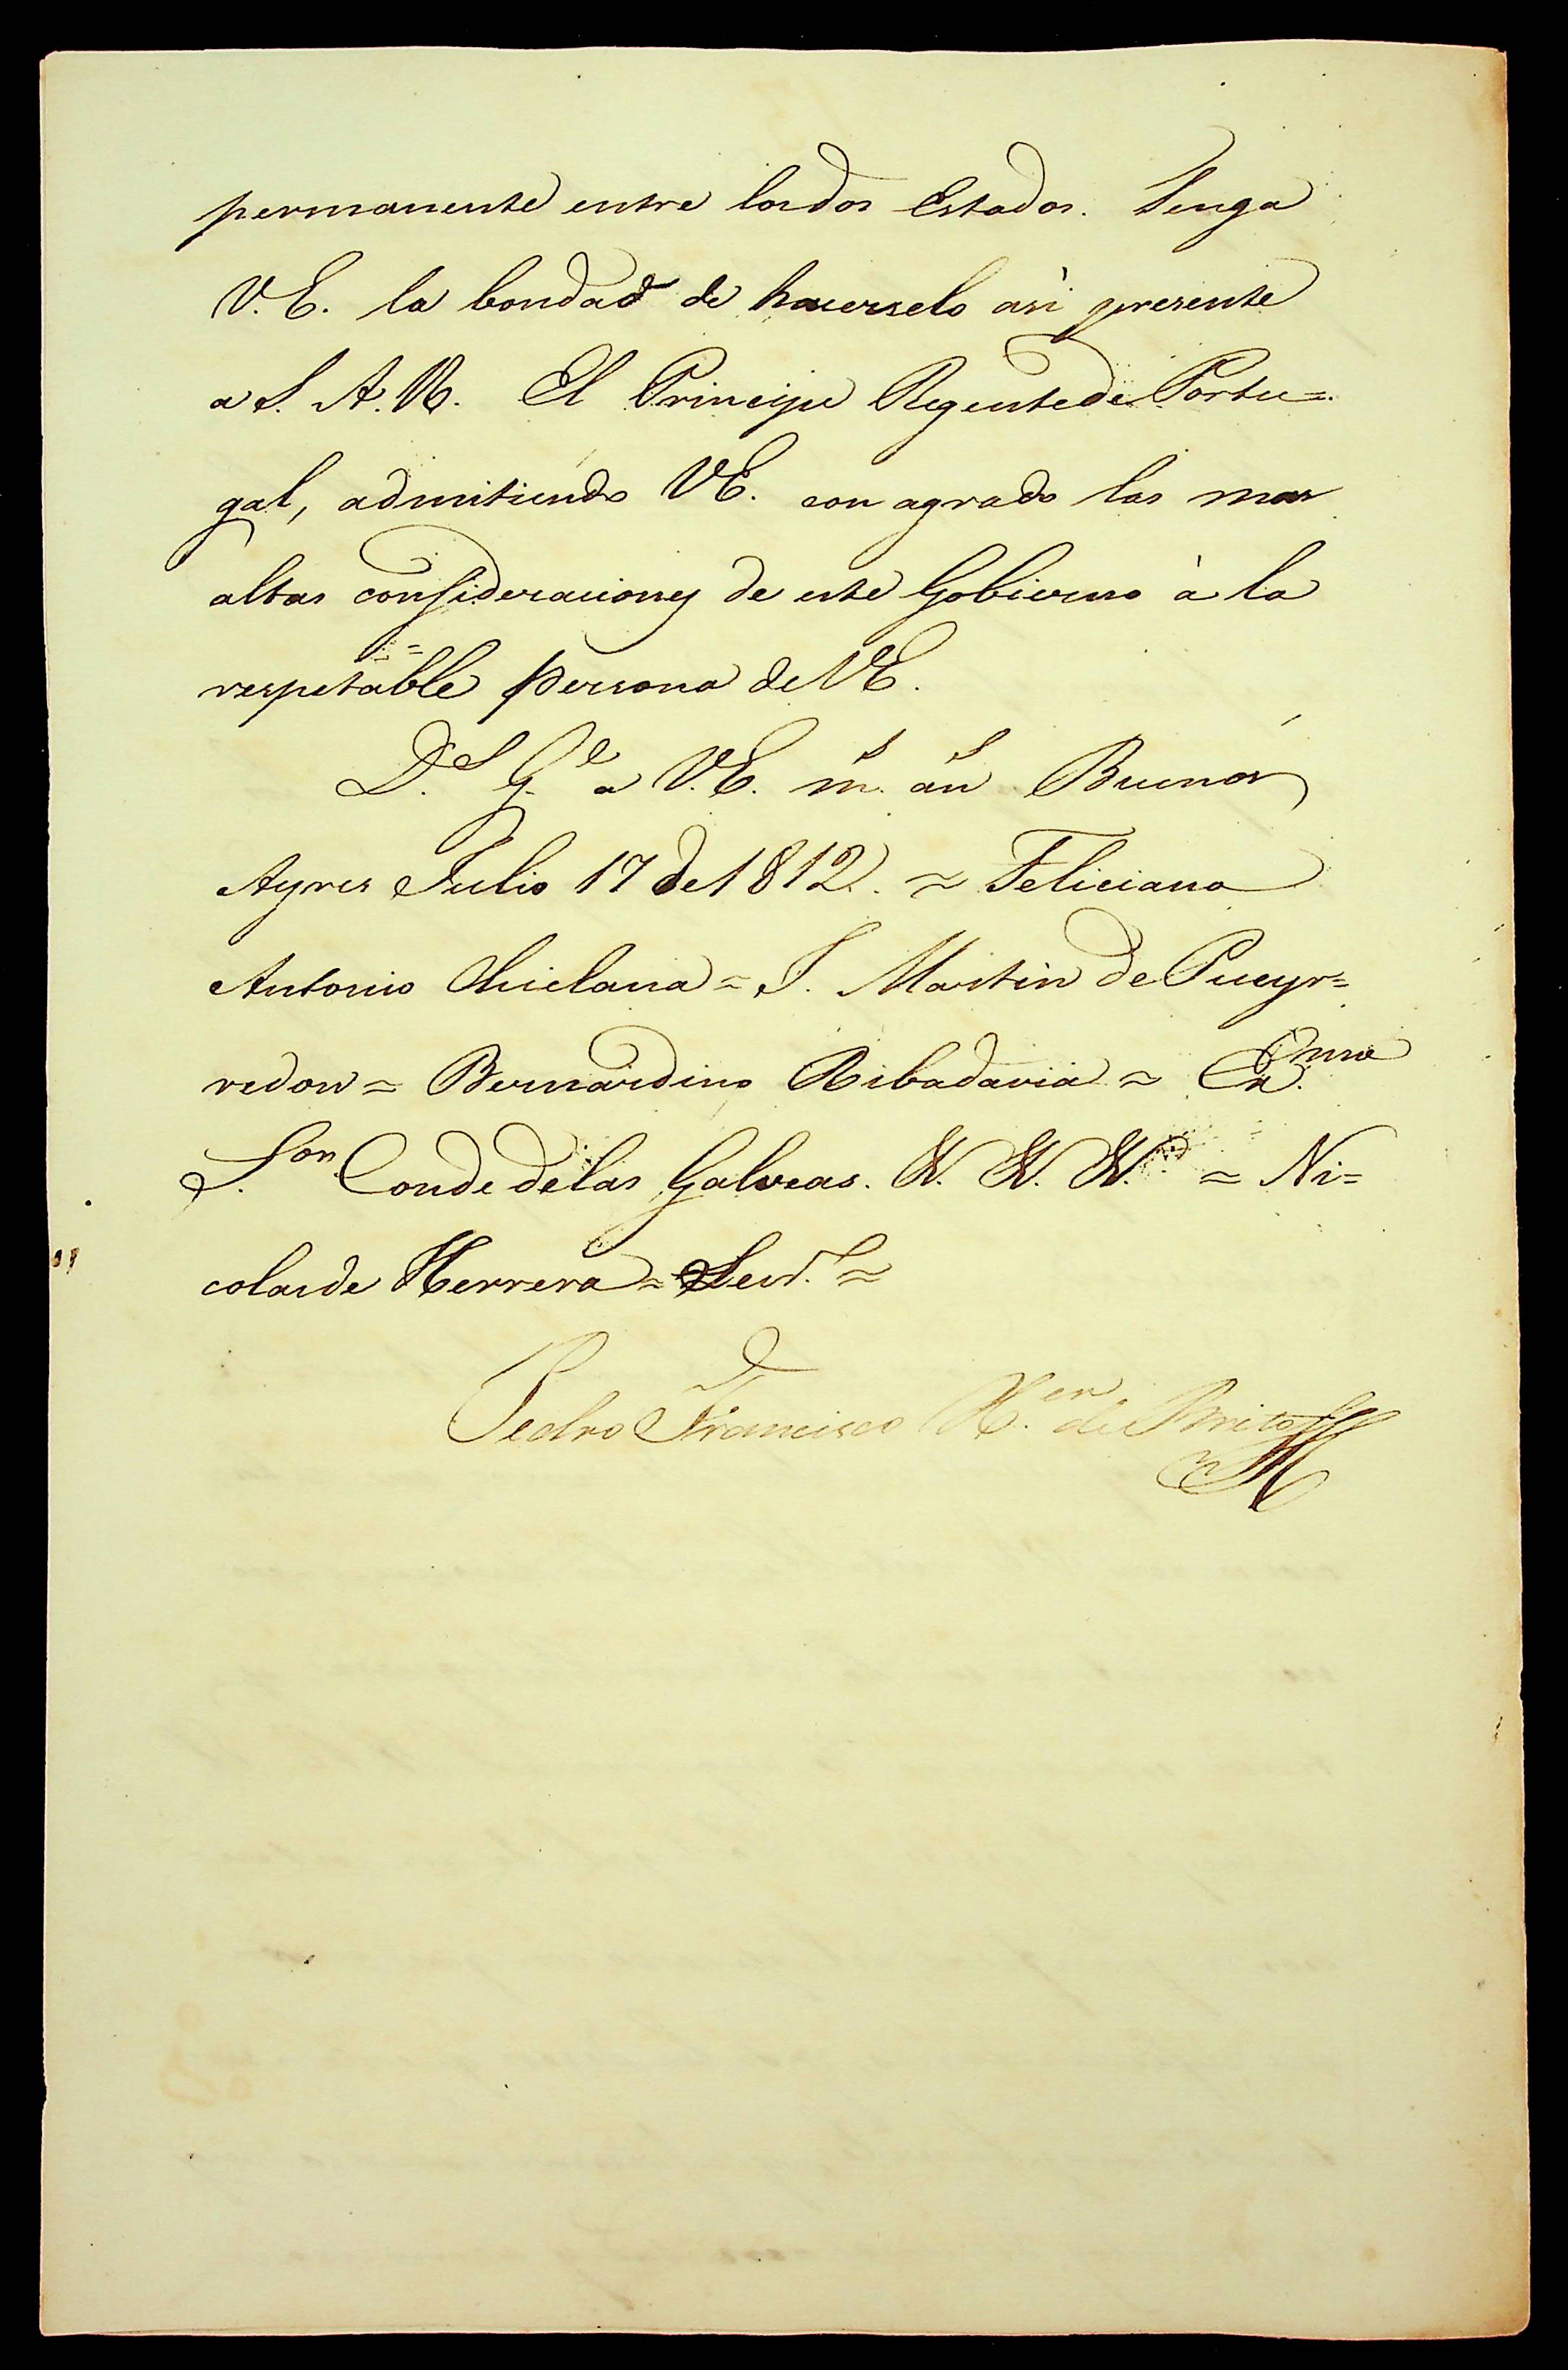 permanente entre los dos Estados. Tenga
V. E. la bondad de hacerselo asi presente
a S. A. R. El Principe Regente de Portu=
gal, admitiendo VE. con agrado las mas
altas consideraciones de este Gobierno à la
respetable persona de VE.
D.s G.e a V. E. m.s an.s Buenos
Ayres Julio 17 de 1812. = Feliciano
Antonio Chiclana = J. Martin de Pueyr=
redon = Bernardino Ribadavia = Ex.mo
S.or Conde de las Galveas. &. &. &. = Ni=
colas de Herrera = Sect.o =
Pedro Francisco X.er de Brito